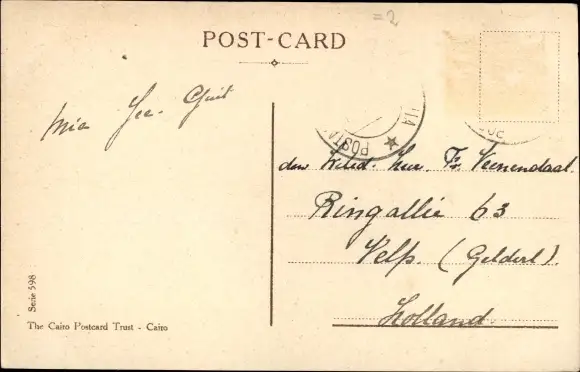 =2
POST-CARD
Mia
POSTA
den Weled. Heer. Fr. Veenendaal.
Ringallie 63
Velp. (Gelderl).
Holland.
Serie 598
The Cairo Postcard Trust - Cairo